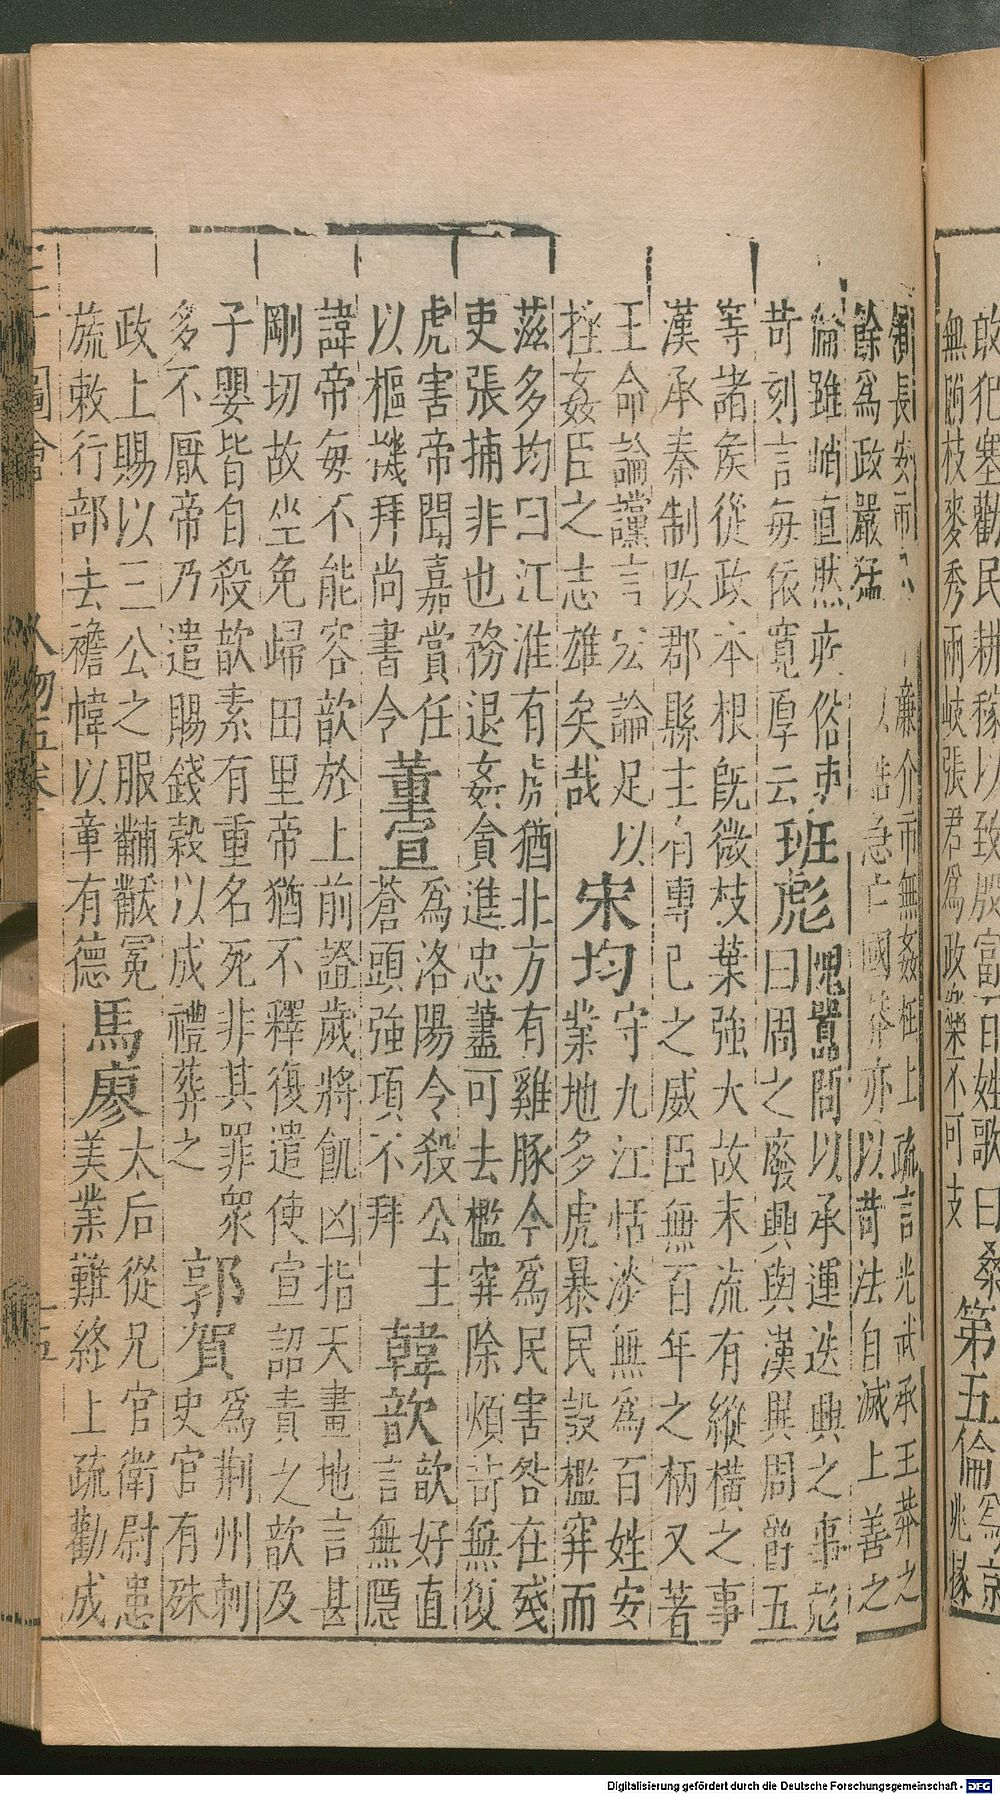 敢犯塞勸民耕稼以致殷富百姓歌曰桑
無附枝麥秀兩岐張君爲政樂不可支
第五倫
爲京
兆掾
領長安市
廉介市無姦枉上疏言光武承王莽之
餘爲政嚴猛
急亡國
亦以苛法自滅上善之
倫雖峭直然
俗吏
苛刻言每依寬厚云
班彪
隗囂問以承運迭興之事彪
曰周之廢興與漢異周爵五
等諸侯從政本根旣微枝葉強大故末流有縱橫之事
漢承秦制改郡縣主有專己之威臣無百年之柄又著
王命論讜言宏論足以
拄姦臣之志雄矣哉
宋均
守九江恬淡無爲百姓安
業地多虎暴民設檻穽而
茲多均曰江淮有虎猶北方有雞豚今爲民害咎在殘
吏張捕非也務退姦貪進忠藎可去檻穽除煩苛無復
虎害帝聞嘉賞任
以樞機拜尚書令
董宣
爲洛陽令殺公主
蒼頭強項不拜
韓歆
歆好直
言無隱
諱帝每不能容歆於上前證歲將飢凶指天畫地言甚
剛切故坐免歸田里帝猶不釋復遣使宣詔責之歆及
子嬰皆自殺歆素有重名死非其罪衆
多不厭帝乃遣賜錢穀以成禮葬之
郭賀
爲荆州刺
史官有殊
政上賜以三公之服黼黻冕
旒敕行部去襜幃以章有德
馬廖
太后從兄官衛尉患
美業難終上疏勸成
三才圖會
人物五卷
十五
Digitalisierung gefördert durch die Deutsche Forschungsgemeinschaft - DFG